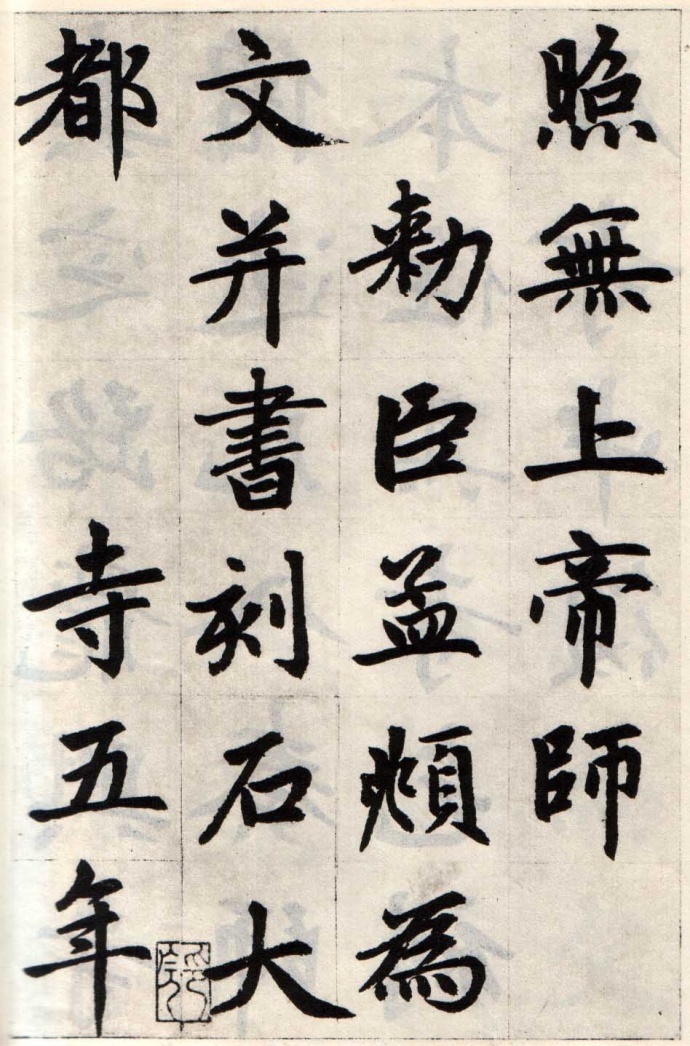 照無上帝師
勅臣孟頫為
文并書刻石大
都寺五年